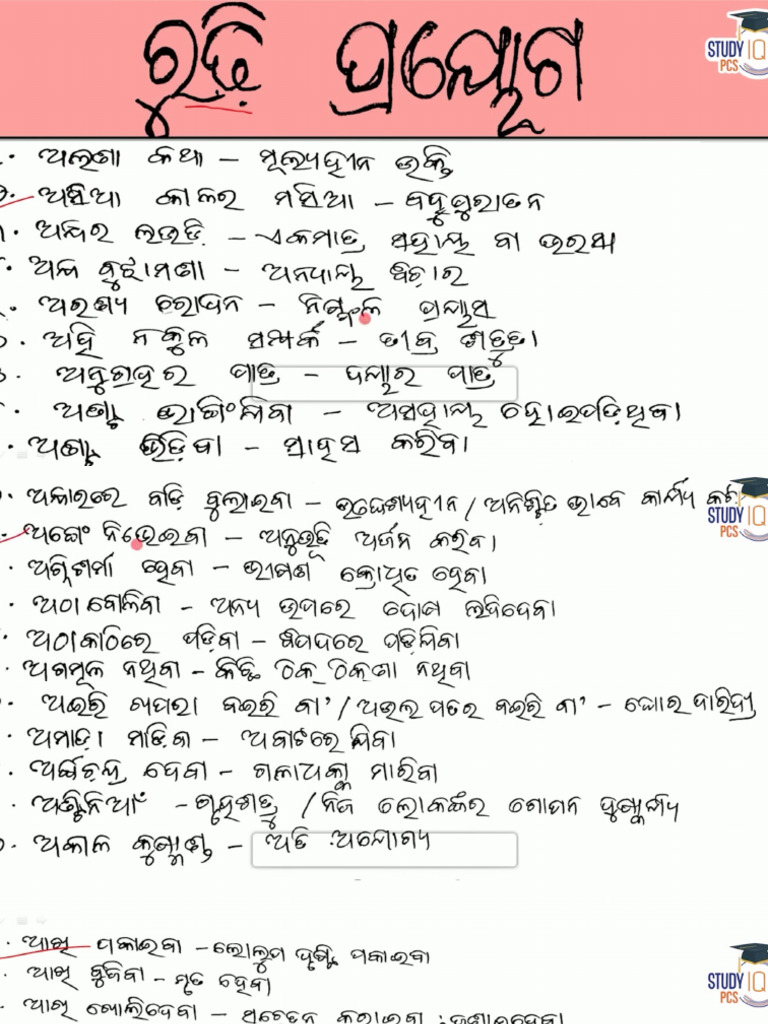 ରୁଢ଼ି ପ୍ରୟୋଗ
STUDY IQ PCS
ଅଲଗା କଥା – ମୂଲ୍ୟହୀନ ଉକ୍ତି
ଅସିଆ କୋଳର ମସିଆ – ବହୁପୁରାତନ
ଅନ୍ଧର ଲଉଡ଼ି – ଏକମାତ୍ର ସହାୟ ବା ଭରସା
ଅନ୍ଧ ବୁଝାମଣା – ଅନ୍ୟାୟ ବିଚାର
ଅରଣ୍ୟ ରୋଦନ – ନିଷ୍ଫଳ ପ୍ରୟାସ
ଅହି ନକୁଳ ସମ୍ପର୍କ – ତୀବ୍ର ଶତ୍ରୁତା
ଅନୁଗ୍ରହର ପାତ୍ର – ଦୟାର ପାତ୍ର
ଅଣ୍ଟା ଭାଗିଂଯିବା – ଅସହାୟ ହୋଇପଡ଼ିବା
ଅଣ୍ଟା ଭିଡ଼ିବା – ସାହସ କରିବା
ଅନ୍ଧାରରେ ବାଡ଼ି ବୁଲାଇବା – ଉଦ୍ଦେଶ୍ୟହୀନ / ଅନିଶ୍ଚିତ ଭାବେ କାର୍ଯ୍ୟ
STUDY IQ PCS
ଅଙ୍ଗେ ନିଭେଇବା – ଅନୁଭୂତି ଅର୍ଜନ କରିବା
ଅଗ୍ନିଶର୍ମା ହେବା – ଭୀଷଣ କ୍ରୋଧିତ ହେବା
ଅଠା ବୋଳିବା – ଅନ୍ୟ ଉପରେ ଦୋଷ ଲଦିଦେବା
ଅଠାକାଠିରେ ପଡ଼ିବା – ବିପଦରେ ପଡ଼ିଯିବା
ଅଗମୂଳ ନଥିବା – କିଛି ଠିକ୍ ଠିକଣା ନଥିବା
ଅଇରି ଖପରା ବଇରି ବା' / ଅଇଲ ପତର ବଇରି ବା' – ଘୋର ଦାରିଦ୍ର୍ୟ
ଅମାଡ଼ା ମାଡ଼ିବା – ଅବାଟରେ ଯିବା
ଅର୍ଦ୍ଧଚନ୍ଦ୍ର ଦେବା – ଗଳାଧକ୍କା ମାରିବା
ଅଣ୍ଟିନିଆଁ – ଗୃହଶତ୍ରୁ / ନିଜ ଲୋକଙ୍କର ଗୋପନ ଦୁଷ୍କାର୍ଯ୍ୟ
ଅକାଳ କୁଷ୍ମାଣ୍ଡ – ଅତି ଅଯୋଗ୍ୟ
ଆଖି ପକାଇବା – ଲୋଲୁପ ଦୃଷ୍ଟି ପକାଇବା
ଆଖି ବୁଜିବା – ମୃତ ହେବା
STUDY IQ PCS
ଆଖି ଖୋଲିଦେବା – ସଚେତନ କରାଇବା